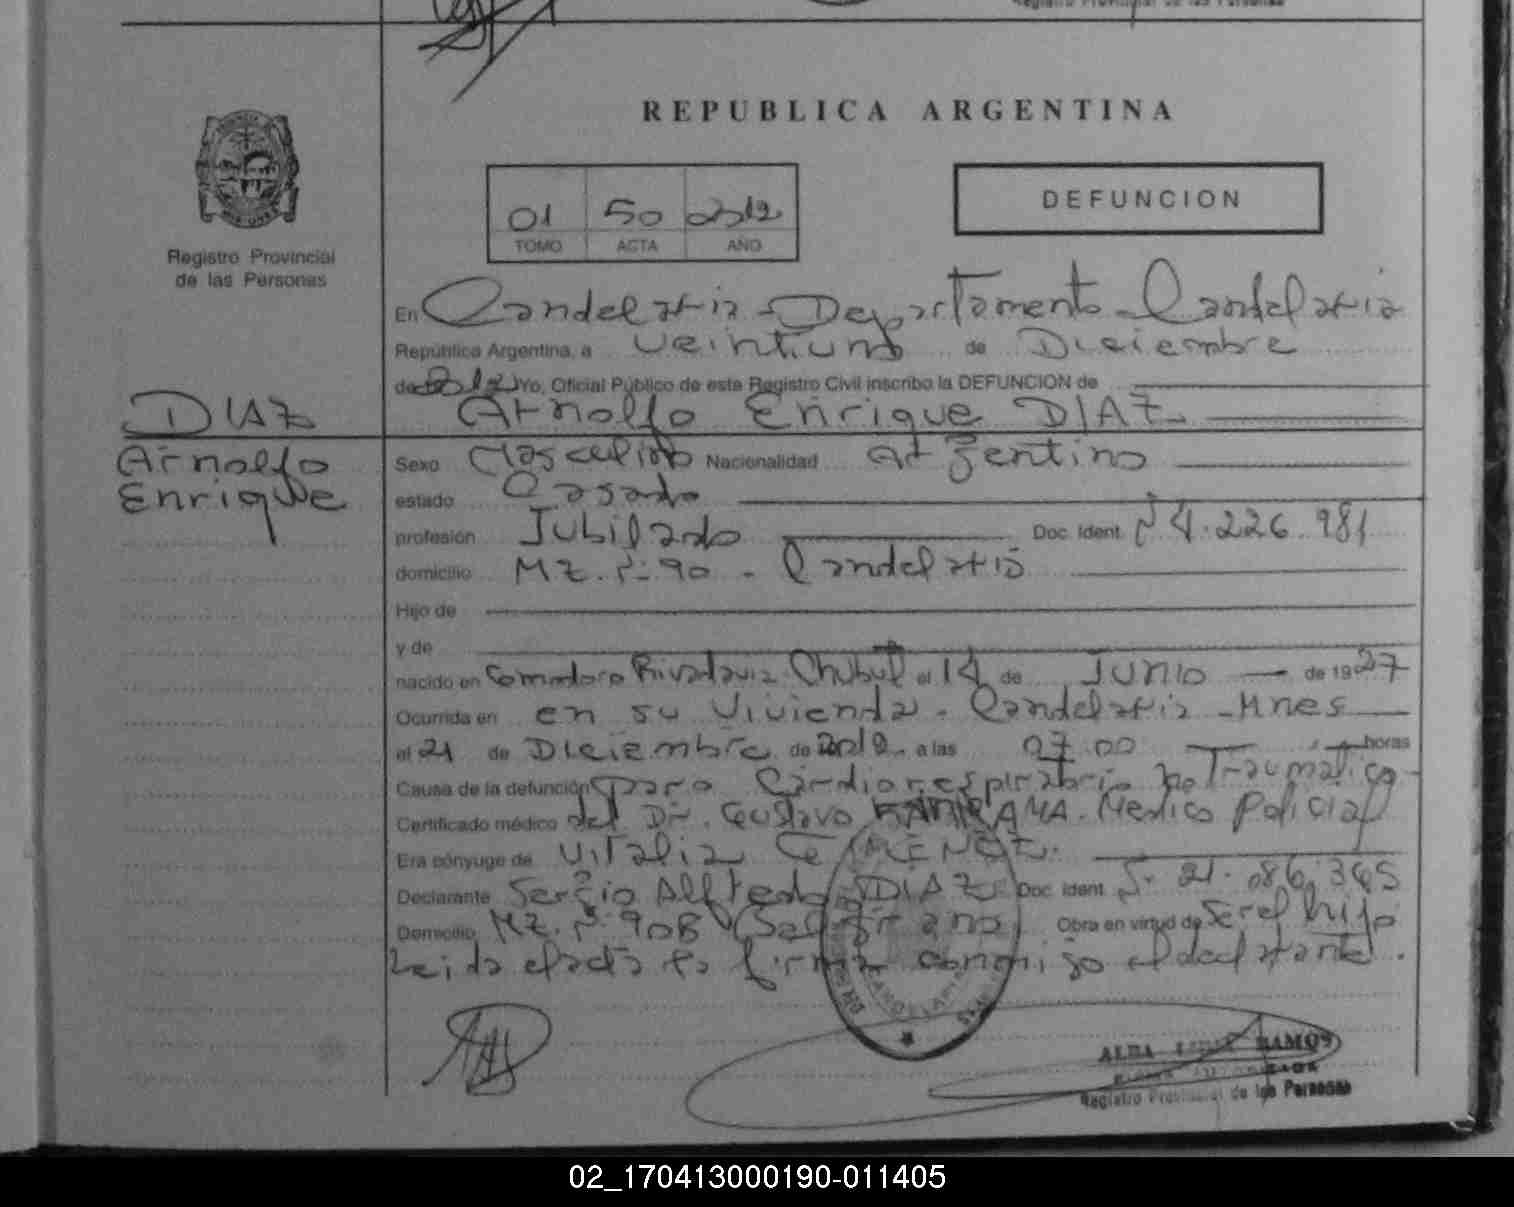 Registro Provincial de las Personas
REPUBLICA ARGENTINA
Registro Provincial
de las Personas
01 50 2012
TOMO ACTA AÑO
DEFUNCION
En Candelaria - Departamento Candelaria
República Argentina, a veintiuno de Diciembre
de 2012 Yo, Oficial Público de este Registro Civil inscribo la DEFUNCION de
Arnolfo Enrique DIAZ
DIAZ
Arnolfo
Enrique
Sexo Masculino Nacionalidad Argentino
estado Casado
profesión Jubilado Doc. Ident. Nº 4.226.981
domicilio MZ. Nº 90 - Candelaria
Hijo de
y de
nacido en Comodoro Rivadavia Chubut el 14 de Junio de 1927
Ocurrida en en su vivienda - Candelaria - Mnes
el 21 de Diciembre de 2012 a las 07.00 horas
Causa de la defunción paro Cardiorespiratorio no Traumatico
Certificado médico del Dr. Gustavo Medico Policial
Era cónyuge de Vitalia GIMENEZ.
Declarante Sergio Alfredo DIAZ Doc. Ident. Nº 21.086.365
Domicilio MZ. Nº 90B Obra en virtud de Ser el hijo
Leida el acta la firma conmigo el declarante.
CANDELARIA
ALBA RAMOS
Registro Provincial de las Personas
02_170413000190-011405